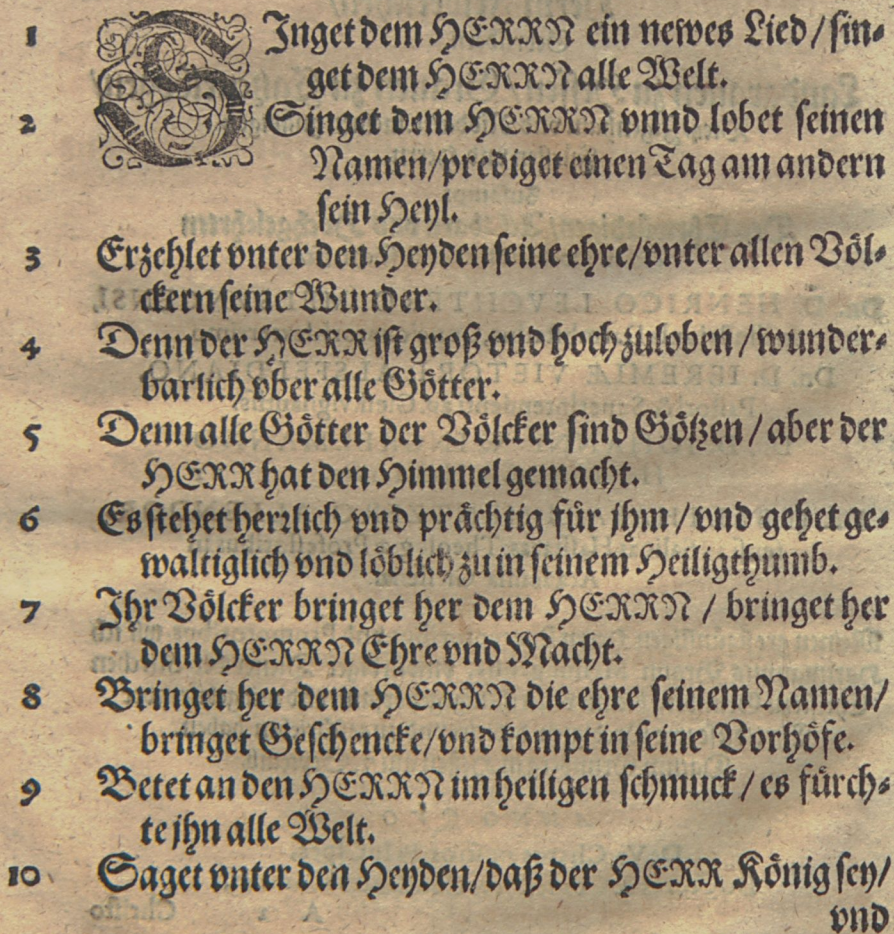 1 SInget dem HERRN ein newes Lied/ sin-
get dem HERRN alle Welt.
2 Singet dem HERRN vnnd lobet seinen
Namen/prediget einen Tag am andern
sein Heyl.
3 Erzehlet vnter den Heyden seine ehre/vnter allen Völ-
ckern seine Wunder.
4 Denn der HERR ist groß vnd hoch zuloben / wunder-
barlich vber alle Götter.
5 Denn alle Götter der Völcker sind Götzen / aber der
HERR hat den Himmel gemacht.
6 Es stehet herrlich vnd prächtig für jhm / vnd gehet ge-
waltiglich vnd löblich zu in seinem Heiligthumb.
7 Ihr Völcker bringet her dem HERRN / bringet her
dem HERRN Ehre vnd Macht.
8 Bringet her dem HERRN die ehre seinem Namen/
bringet Geschencke/vnd kompt in seine Vorhöfe.
9 Betet an den HERRN im heiligen schmuck / es fürch-
te jhn alle Welt.
10 Saget vnter den Heyden/daß der HERR König sey/
vnd